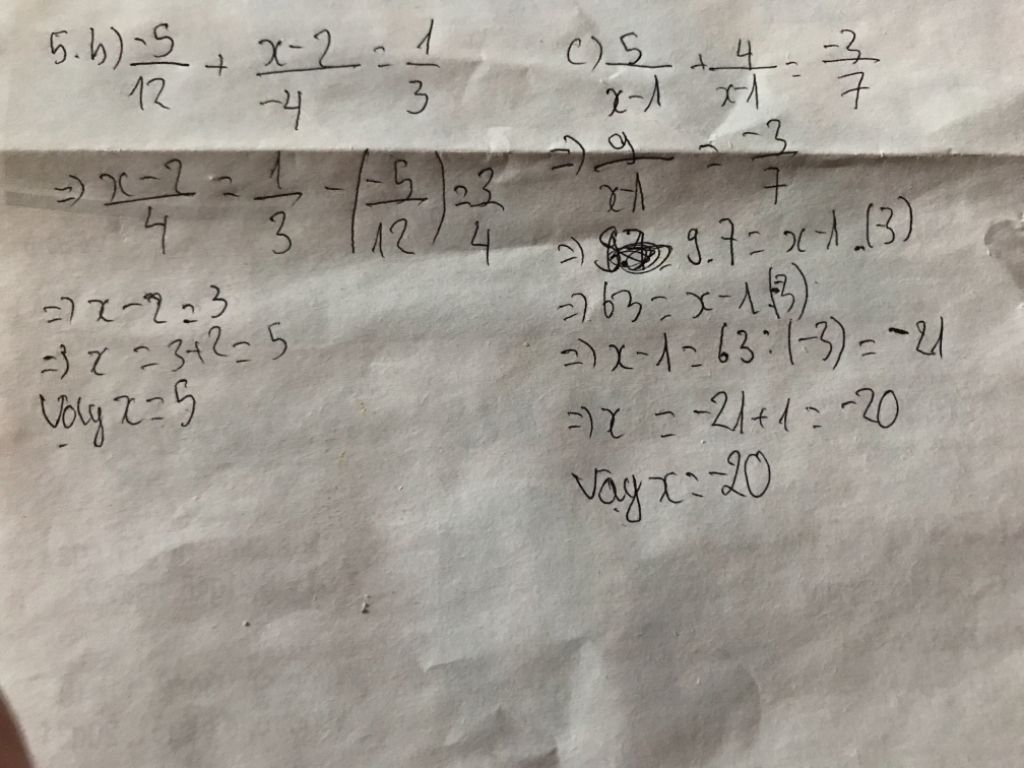 5.b) -5/12 + x-2/-4 = 1/3
=> x-2/4 = 1/3 - (-5/12) = 3/4
=> x-2=3
=> x = 3+2=5
Vậy x=5
c) 5/x-1 + 4/x-1 = -3/7
=> 9/x-1 = -3/7
=> 9.7= x-1.(3)
=> 63= x-1(-3)
=> x-1=63:(-3) = -21
=> x = -21+1= -20
Vậy x=-20